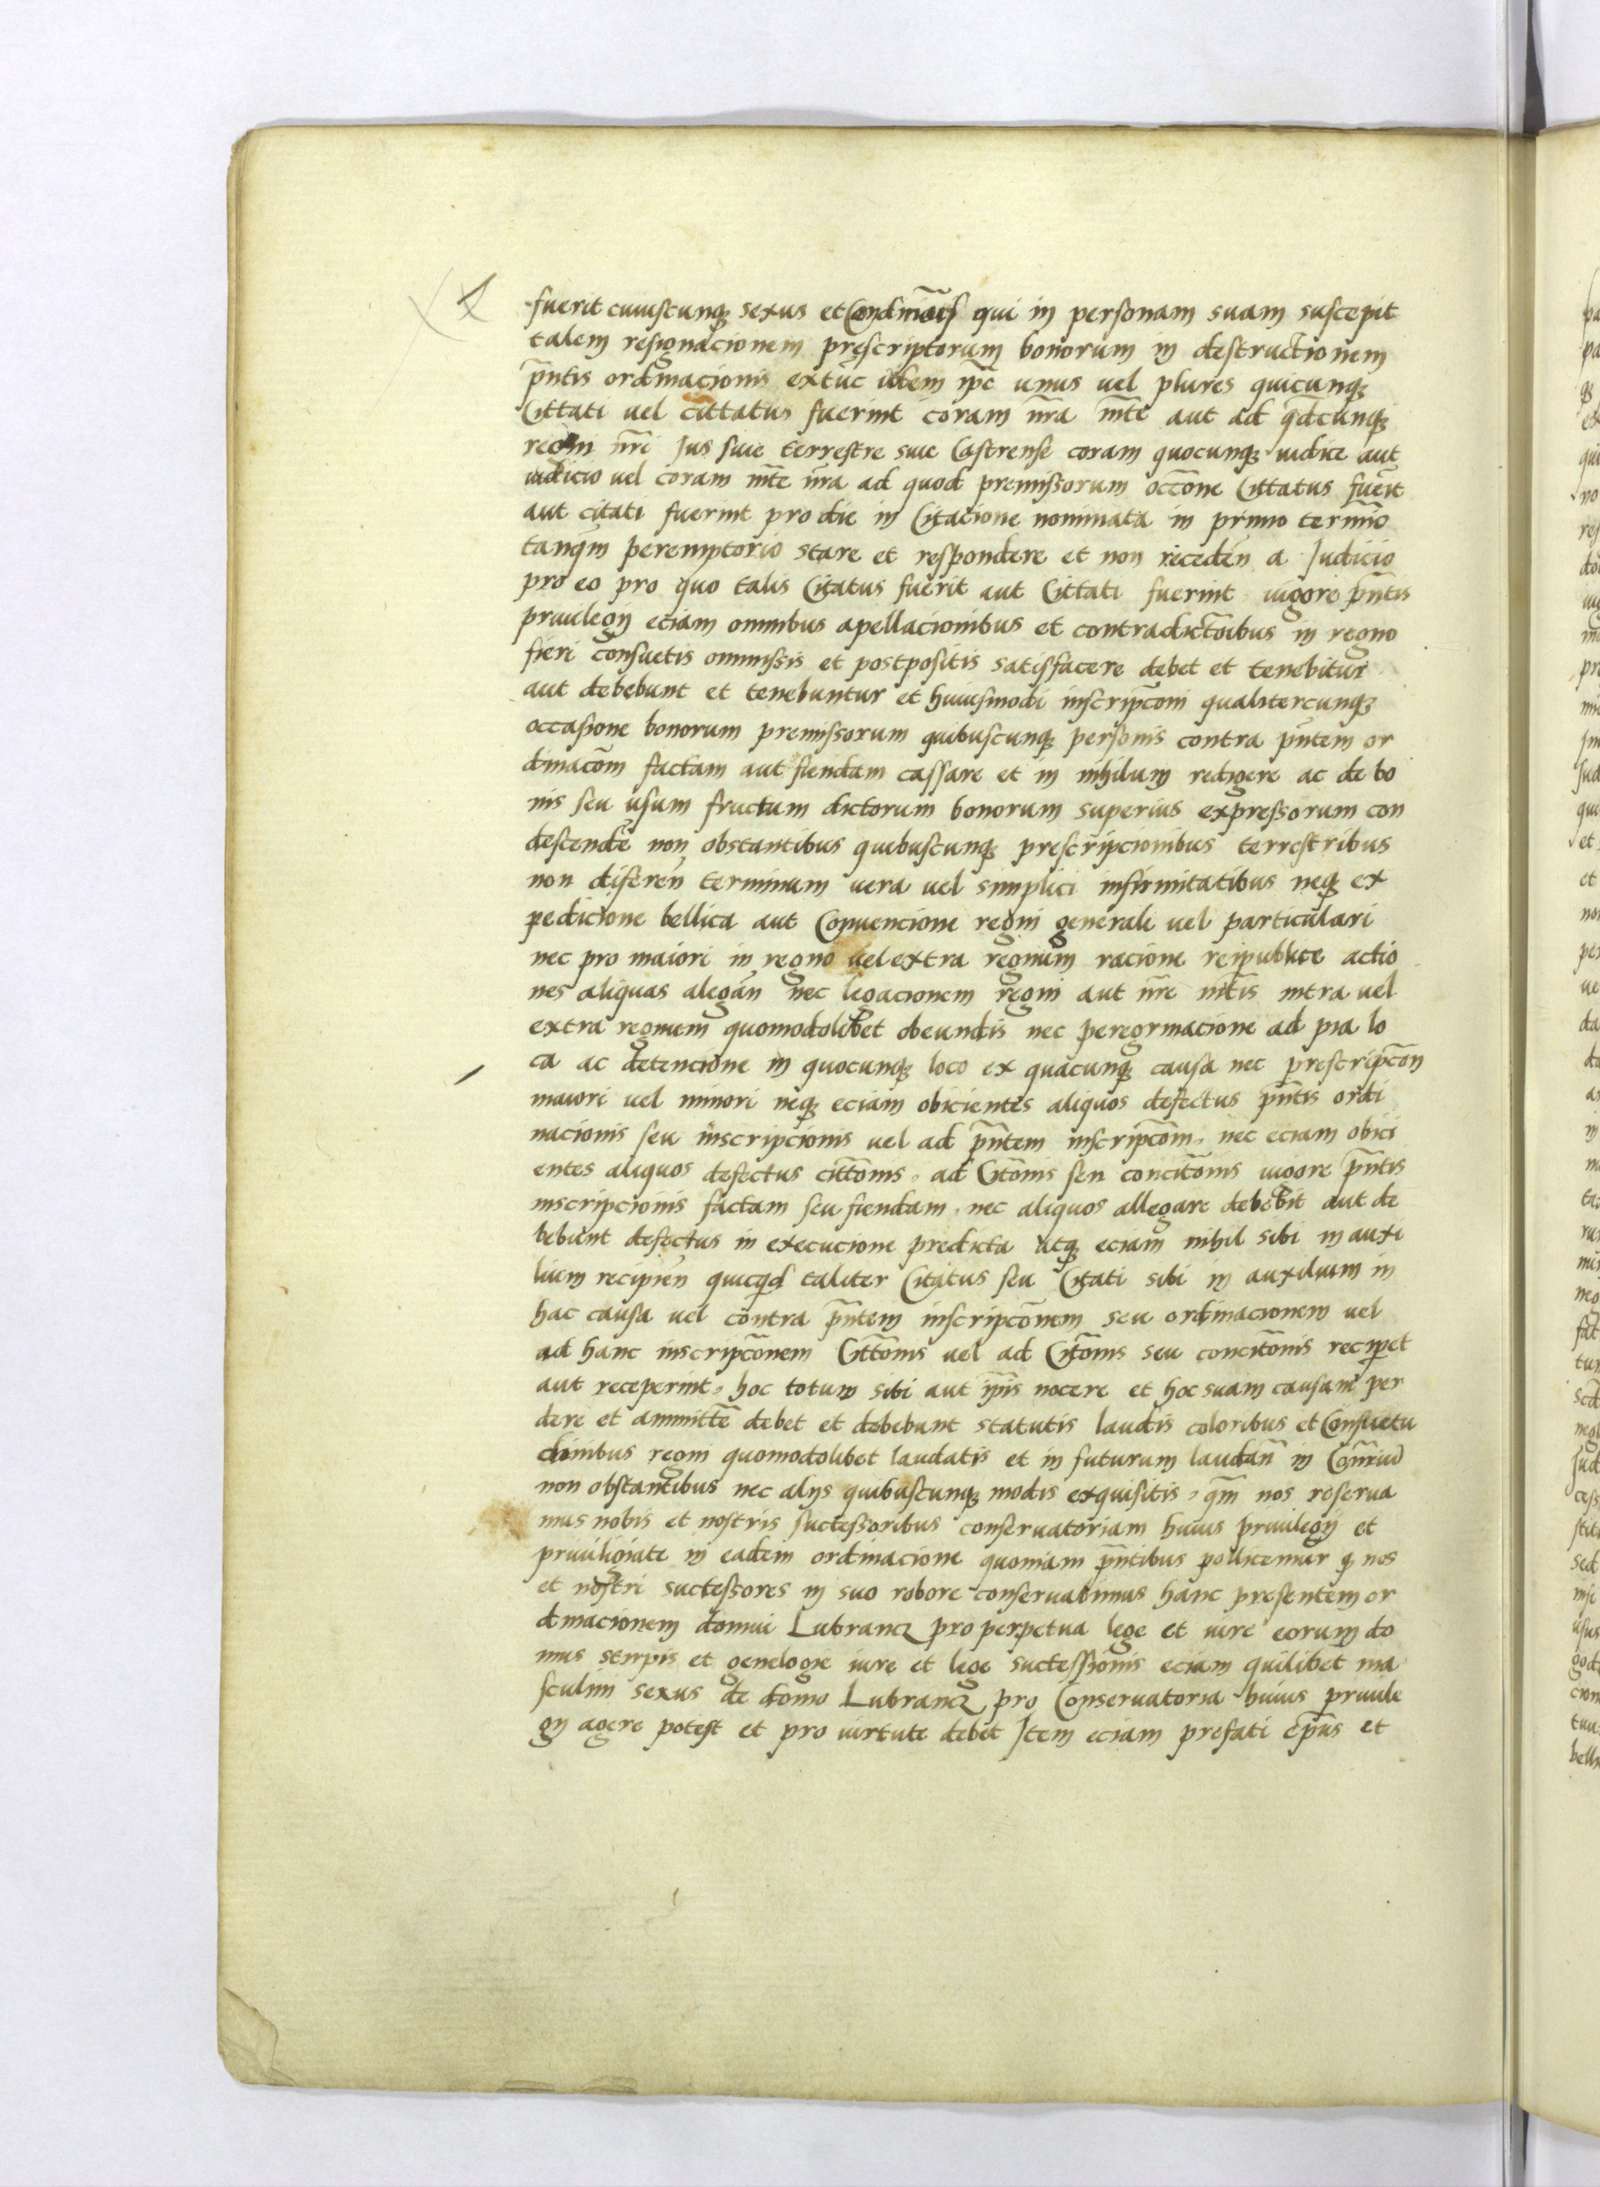 fuerit cuiuscunq; sexus et qui in personam suam suscepit
talem resignacionem pręscriptorum bonorum in destructionem
p̄ntis ordinacionis extūc idem ip̄e unus vel plures quicunq;
Cittati vel cittatus fuerint coram nr̄a mte aut ad qd̄cunq;
regni nr̄i Jus siue terrestre siue Castrense coram quocunq; iudice aut
iudicio vel coram mte nr̄a ad quod premissorum occōne Cittatus fuerit
aut citati fuerint pro die in Citacione nominata in primo termīo
tanq̄m peremptorio stare et respondere et non receden̄ a Judicio
pro eo pro quo talis Citatus fuerit aut Cittati fuerint vigore p̄ntis
priuilegij eciam omnibus apellacionibus et contradictōibus in regno
fieri consuetis ommissis et postpositis satisfacere debet et tenebitur
aut debebunt et tenebuntur et huiusmodi inscripc̄oni qualitercunq;
occasione bonorum premissorum quibuscunq; personis contra p̄ntem or
dinacōm factam aut fiendam cassare et in nihilum redigere ac de bo
nis seu usum fructum dictorum bonorum superius expressorum con
descendē non obstantibus quibuscunq; prescripcionibus terrestribus
non diferen̄ terminum vera vel simplici infirmitatibus neq; ex
pedicione bellica aut Convencione regni generali vel particulari
nec pro maiori in regno vel extra regnum racione reipublice actio
nes aliquas alegan̄ nec legacionem regni aut nr̄e mtis intra vel
extra regnum quomodolibet obeundis nec peregrinacione ad pia lo
ca ac detencione in quocunq; loco ex quacunq; causa nec prescripc̄on
maiori vel minori neq; eciam obicientes aliquos defectus p̄ntis ordi
nacionis seu inscripcionis vel ad p̄ntem inscripc̄om, nec eciam obici
entes aliquos defectus cittōnis, ad Citōnis seu concitōnis vigore p̄ntis
inscripcionis factam seu fiendam, nec aliquos allegare debebit aut de
bebunt defectus in execucione predicta atq; eciam nihil sibi in auxi
lium recipien̄ quicq̄d taliter Citatus seu Citati sibi in auxilium in
hac causa vel contra p̄ntem inscripcōnem seu ordinacionem vel
ad hanc inscripcōnem Cittōnis vel ad Citōnis seu concitōnis recip̄et
aut receperint, hoc totum sibi aut ip̄is nocere et hoc suam causam per
dere et ammittē debet et debebunt statutis laudis coloribus et Consuetu
dinibus regni quomodolibet laudatis et in futurum laudan̄
non obstantibus nec alijs quibuscunq; modis exquisitis, qm̄ nos reserva
mus nobis et nostris successoribus conservatoriam huius priuilegij et
priuiligiate in eadem ordinacione quoniam p̄ntibus pollicemur q; nos
et nostri successores in suo robore conservabimus hanc presentem or
dinacionem domui Lubrancz pro perpetua lege et iure eorum do
mus stirpis et genelogie iure et lege successionis eciam quilibet ma
sculini sexus de domo Lubrancz pro Conservatoria huius priuile
gij agere potest et pro virtute debet Jtem eciam prefati ep̄us et